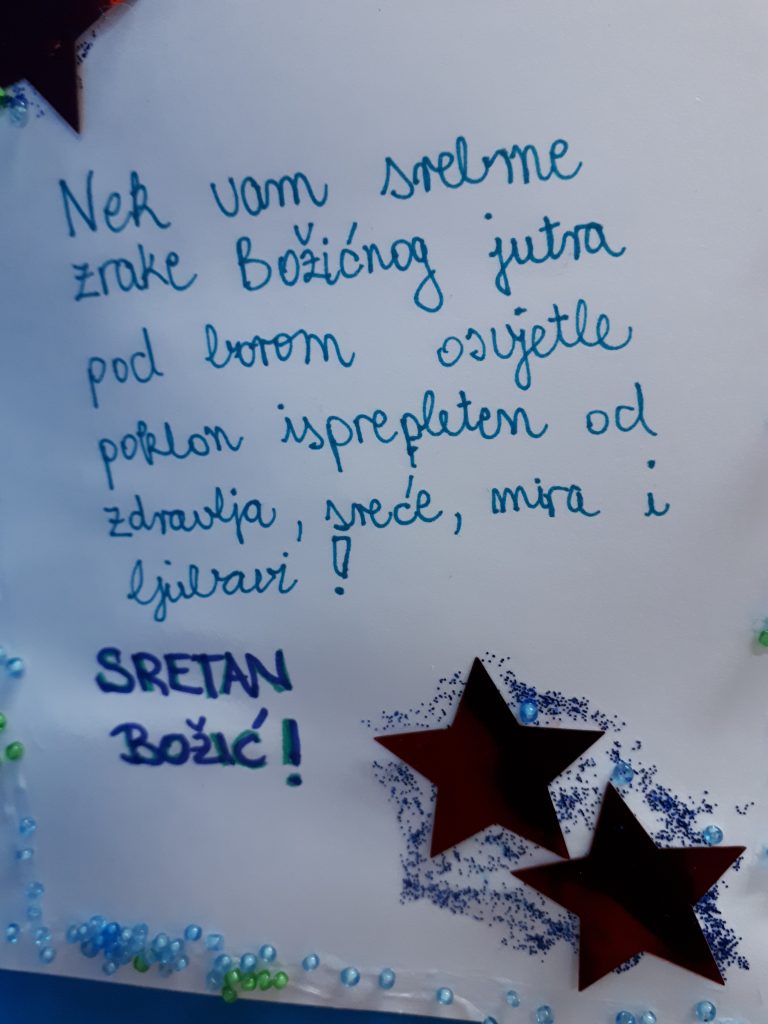 Nek vam srebrne
zrake Božićnog jutra
pod borom osvjetle
poklon isprepleten od
zdravlja, sreće, mira i
ljubavi!
SRETAN
BOŽIĆ!